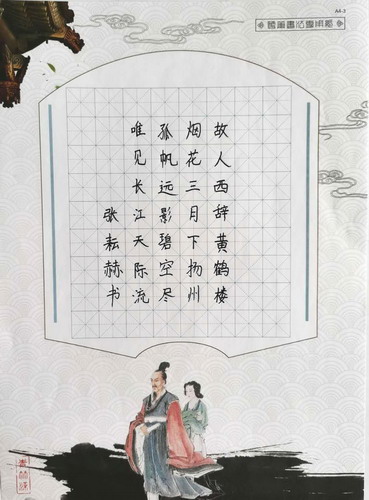 故人西辞黄鹤楼
烟花三月下扬州
孤帆远影碧空尽
唯见长江天际流
张耘赫书
A4-3